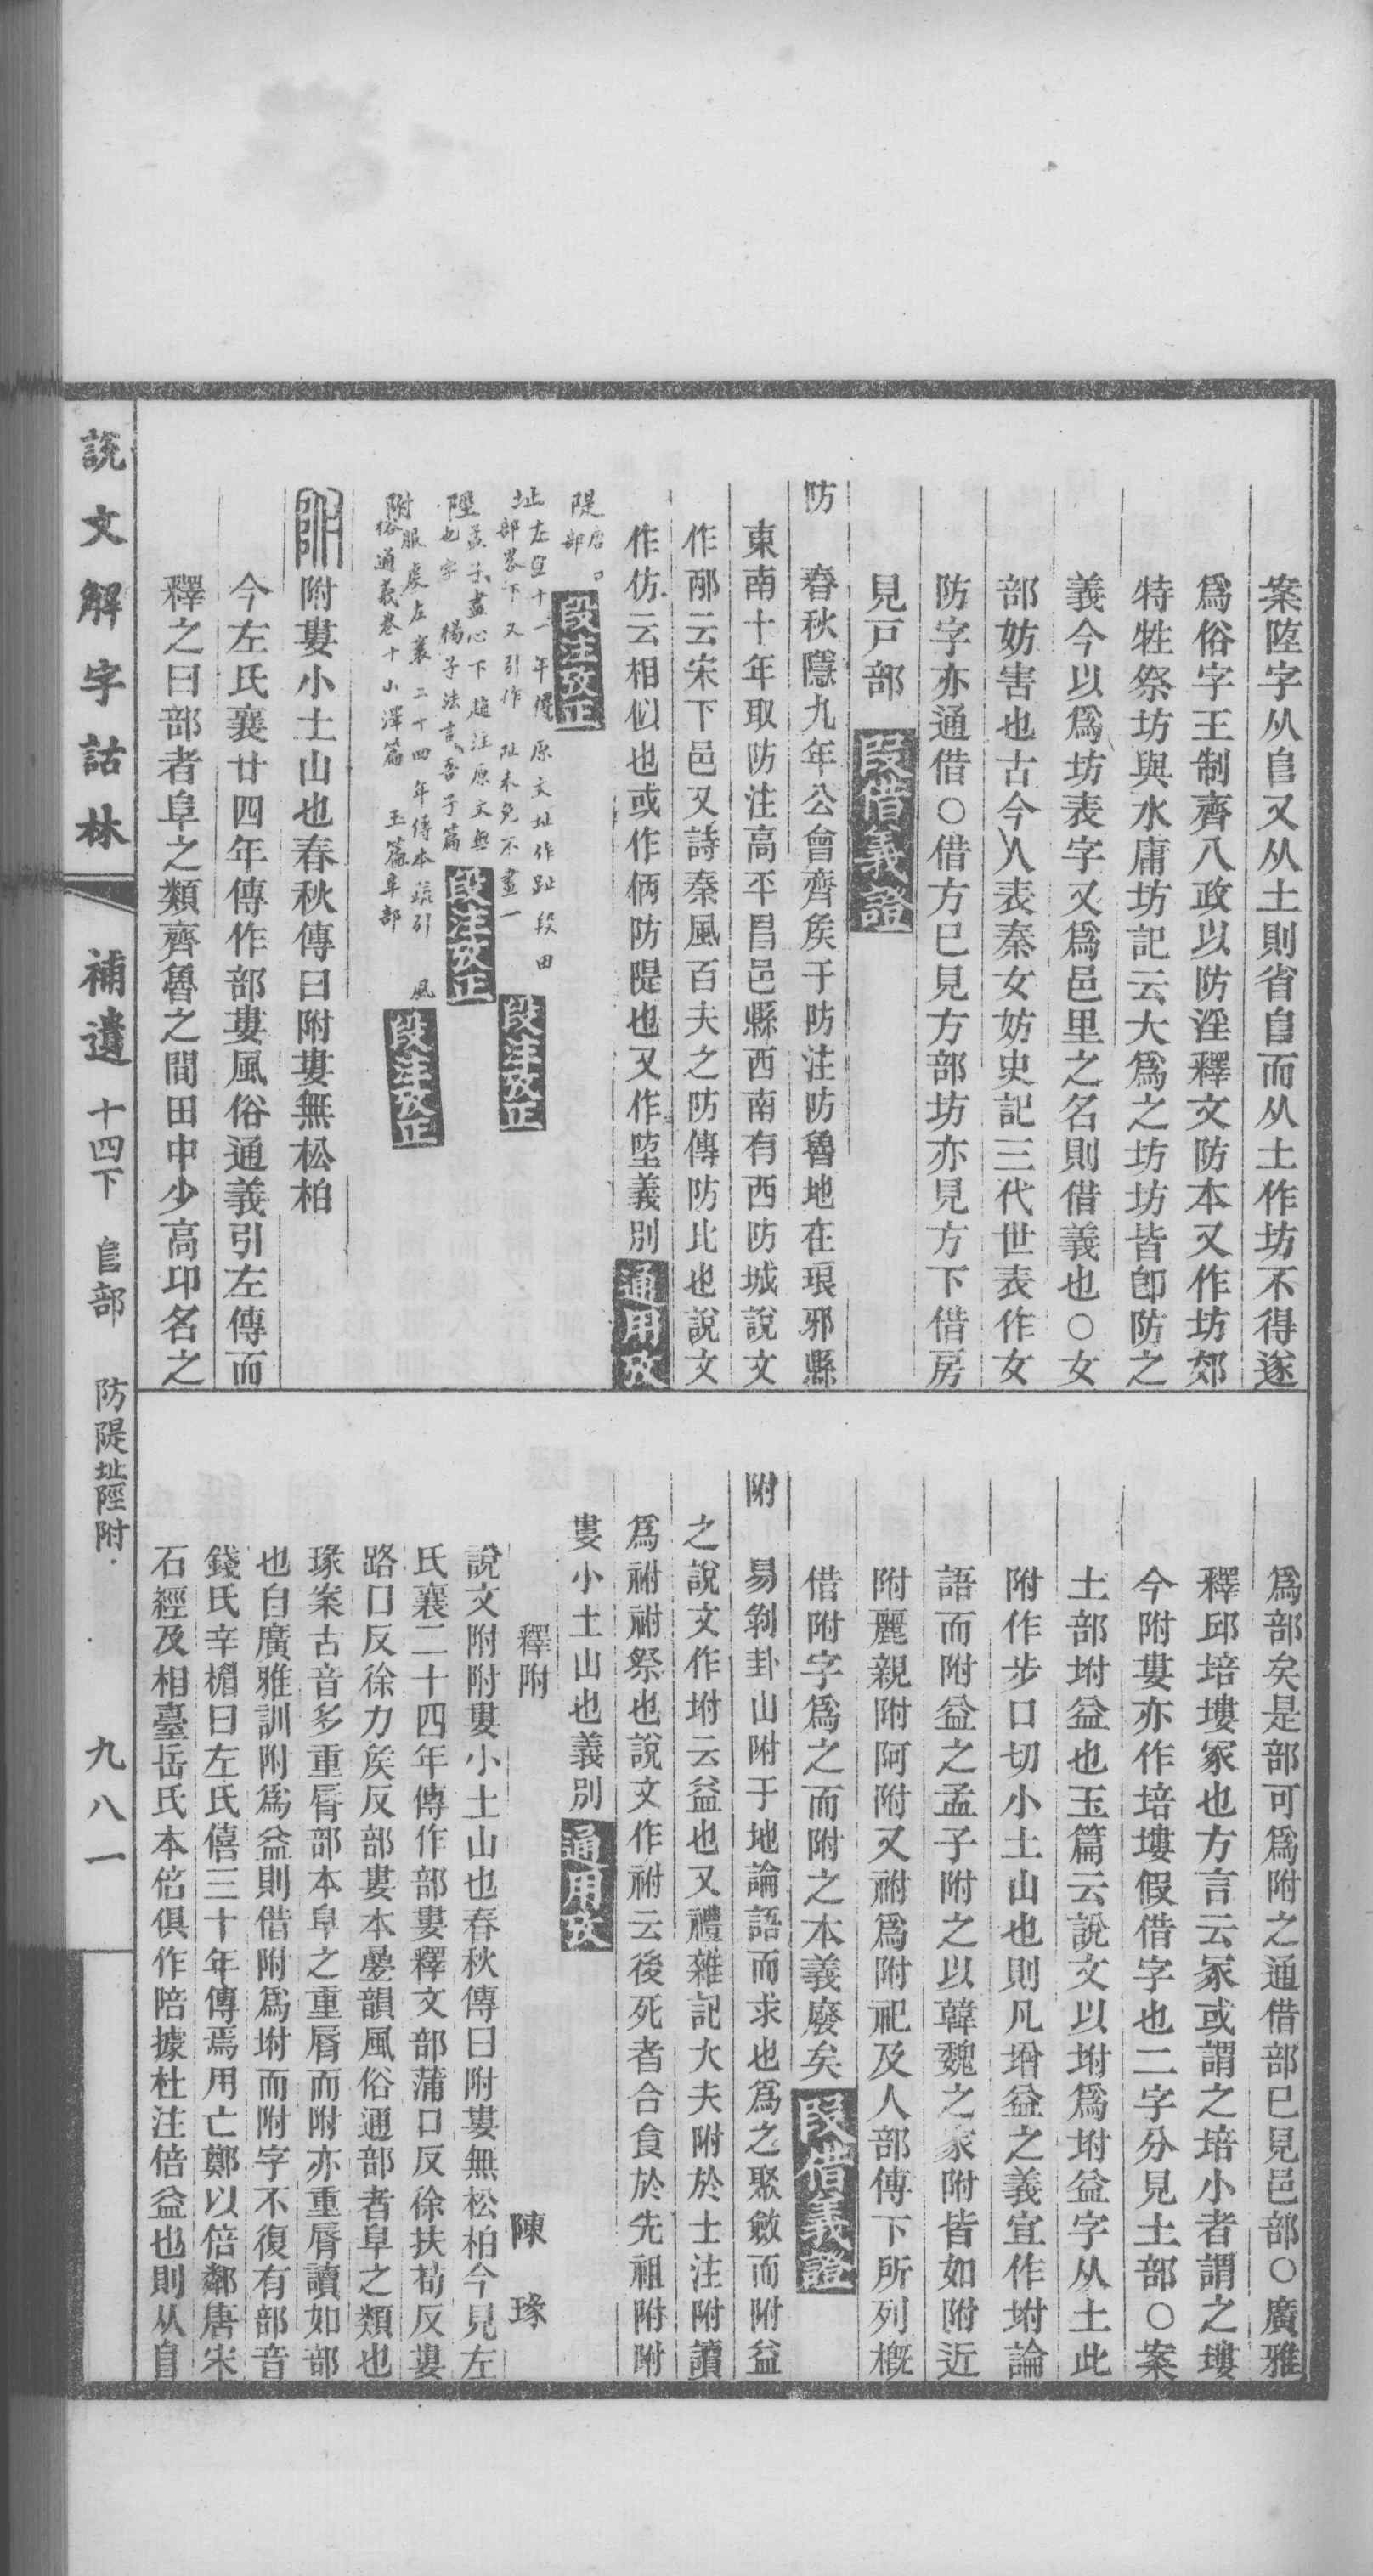 案陸字从𨸏又从土則省𨸏而从土作坊不得遂
爲俗字王制齊八政以防淫釋文防本又作坊郊
特牲祭坊與水庸坊記云大爲之坊坊皆卽防之
義今以爲坊表字又爲邑里之名則借義也○女
部妨害也古今人表秦女妨史記三代世表作女
防字亦通借○借方已見方部坊亦見方下借房
見戸部 段借義證
防 春秋隱九年公會齊矦于防注防魯地在琅邪縣
東南十年取防注高平昌邑縣西南有西防城說文
作邴云宋下邑又詩秦風百夫之防傳防比也說文
作仿云相似也或作俩防隄也又作埅義別 通用攷
隄 唐部。 段注攷正
址 左宣十一年傳原文址作趾段田
部畧下又引作址未免不畫一 段注攷正
陘 孟子盡心下趙注原文無
也字 楊子法言吾子篇 段注攷正
附 服虔左襄二十四年傳本疏引 風
俗通義卷十山澤篇 玉篇阜部 段注攷正
附 附婁小土山也春秋傳曰附婁無松柏
今左氏襄廿四年傳作部婁風俗通義引左傳而
釋之曰部者阜之類齊魯之間田中少高卬名之
爲部矣是部可爲附之通借部已見邑部○廣雅
釋邱培塿冢也方言云冢或謂之培小者謂之塿
今附婁亦作培塿假借字也二字分見土部○案
土部坿益也玉篇云說文以坿爲坿益字从土此
附作步口切小土山也則凡增益之義宜作坿論
語而附益之孟子附之以韓魏之家附皆如附近
附麗親附阿附又祔爲附祀及人部傅下所列槪
借附字爲之而附之本義廢矣 段借義證
附 易剝卦山附于地論語而求也爲之聚斂而附益
之說文作坿云益也又禮雜記大夫附於士注附讀
爲祔祔祭也說文作祔云後死者合食於先祖附附
婁小土山也義別 通用攷
釋附 陳瑑
說文附附婁小土山也春秋傳曰附婁無松柏今見左
氏襄二十四年傳作部婁釋文部蒲口反徐扶苟反婁
路口反徐力矦反部婁本曡韻風俗通部者阜之類也
瑑案古音多重脣部本阜之重脣而附亦重脣讀如部
也自廣雅訓附爲益則借附爲坿而附字不復有部音
錢氏辛楣曰左氏僖三十年傳焉用亡鄭以倍鄰唐宋
石經及相臺岳氏本倍俱作陪據杜注倍益也則从𨸏
說文解字詁林 補遺 十四下 𨸏部 防隄址陘附 九八一